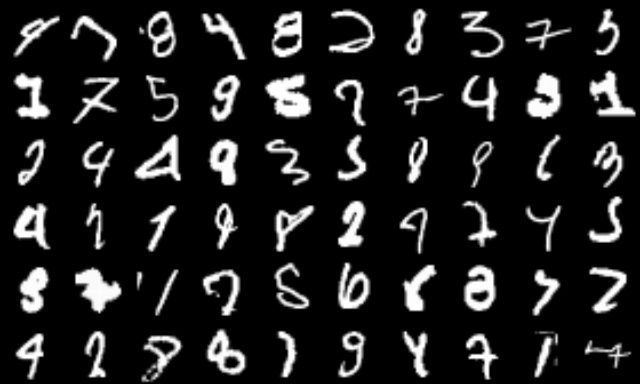 9 7 8 4 8 2 8 3 7 5
1 7 5 9 5 7 7 4 3 1
2 4 4 9 3 5 8 9 6 3
4 2 1 9 8 2 9 7 4 5
8 7 1 7 5 6 8 8 7 2
4 2 8 8 1 9 4 7 1 4